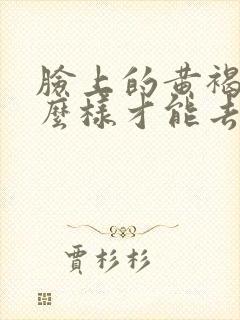 臉上的黃褐
麼樣才能去
賈杉杉